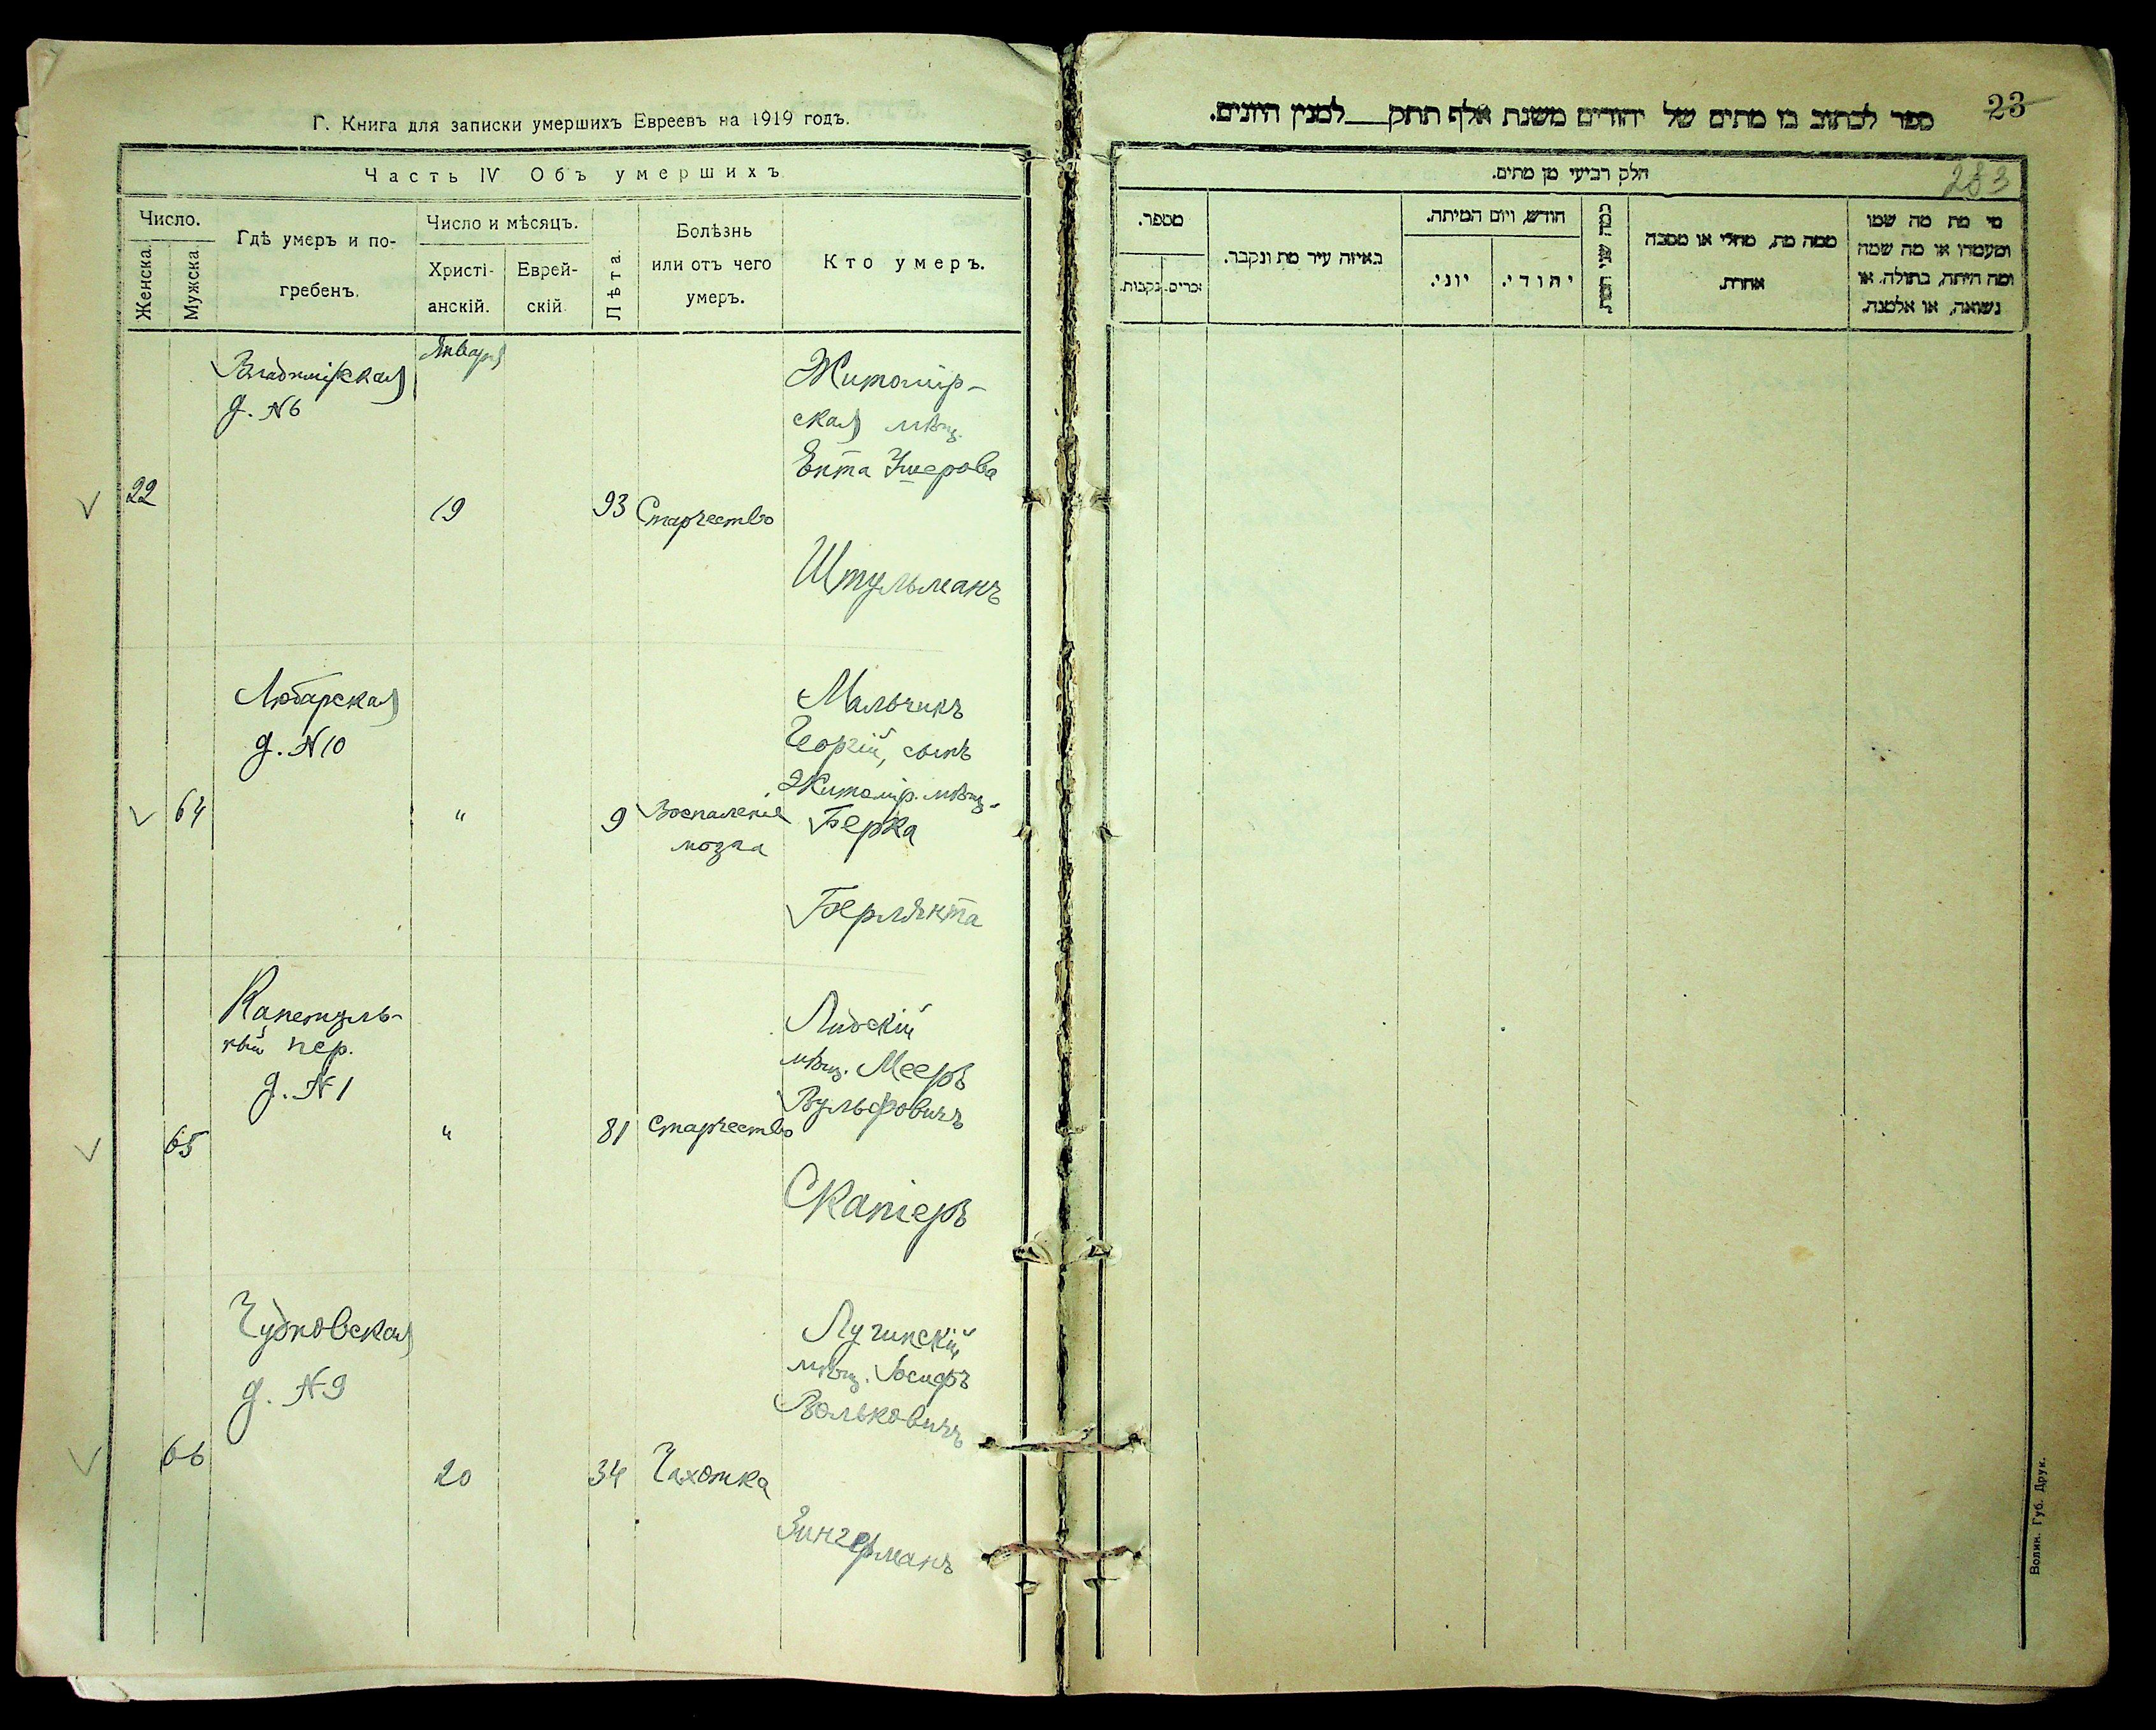 Г. Книга для записки умершихъ Евреевъ на 1919 годъ.
Часть IV Объ умершихъ
Число.
Женска.
Мужска.
Гдѣ умеръ и по-
гребенъ.
Число и мѣсяцъ.
Христі-
анскій.
Еврей-
скій
Лѣта.
Болѣзнь
или отъ чего
умеръ.
Кто умеръ.
Января
22
Владимірская
д. №6
19
93
Старчество
Житомір-
ская мѣщ.
Ента Ушерова
Штульманъ
64
Любарская
д. №10
"
9
Воспаленіе
мозга
Мальчикъ
Георгій, сынъ
Житомір. мѣщ.
Берка
65
ный пер.
д. №1
"
81
Старчество
Лидскій
мѣщ. Мееръ
Вульфовичъ
Скапіеръ
66
Чудновская
д. №9
20
34
Чахотка
Лугинскій
мѣщ. Іосифъ
Вольковичъ
Зингерманъ
23
ספר לכתוב בו מתים של יהודים משנת אלף תתק___למנין היונים.
283
חלק רביעי מן מתים.
מספר.
זכרים.
נקבות.
באיזה עיר מת ונקבר.
חודש, ויום המיתה.
יוני.
יהודי.
כמה שני המת
ממה מת, מחלי או מסבה
אחרת.
מי מת מה שמו
ומעמדו או מה שמה
ומה היתה, בתולה, או
נשואה, או אלמנה.
Волин. Губ. Друк.